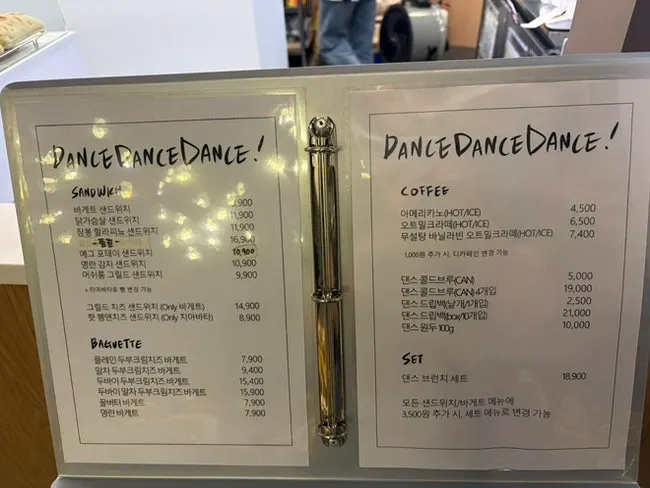 DANCE DANCE DANCE!
SANDWICH
바게트 샌드위치 ,900
닭가슴살 샌드위치 11,900
잠봉 할라피뇨 샌드위치 11,900
- 품절 - 16,900
에그 포테이 샌드위치 10,900
명란 감자 샌드위치 10,900
머쉬룸 그릴드 샌드위치 9,900
* 치아바타로 빵 변경 가능
그릴드 치즈 샌드위치 (Only 바게트) 14,900
핫 햄엔치즈 샌드위치 (Only 치아바타) 8,900
BAGUETTE
플레인 두부크림치즈 바게트 7,900
말차 두부크림치즈 바게트 9,400
두바이 두부크림치즈 바게트 15,400
두바이 말차 두부크림치즈 바게트 15,900
꿀버터 바게트 7,900
명란 바게트 7,900
DANCE DANCE DANCE!
COFFEE
아메리카노(HOT/ICE) 4,500
오트밀크라떼(HOT/ICE) 6,500
무설탕 바닐라빈 오트밀크라떼(HOT/ICE) 7,400
1,000원 추가 시, 디카페인 변경 가능
댄스 콜드브루(CAN) 5,000
댄스 콜드브루(CAN) 4개입 19,000
댄스 드립백(낱개/1개입) 2,500
댄스 드립백(box/10개입) 21,000
댄스 원두 100g 10,000
SET
댄스 브런치 세트 18,900
모든 샌드위치/바게트 메뉴에
3,500원 추가 시, 세트 메뉴로 변경 가능